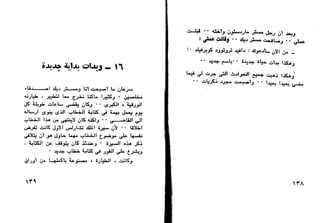 وبعد أن رحل مستر ماردستون وأخته ٠٠ قبلت
عمتى ٠٠ وصافحت مستر ديك ٠٠ وقالت عمتى :
- من الآن سأدعوك : دافيد تروتوود كوبرفيلد ٠٠
وهكذا بدأت حياة جديدة ٠٠ باسم جديد ٠٠
وهكذا ذهبت جميع الحوادث التى جرت لى فيما
مضى بعيدا بعيدا ٠٠ وأصبحت مجرد ذكريات ٠٠
١٣٨
١٦ - وبدأت بداية جديدة
سرعان ما أصبحت أنا ومستر ديك أصدقاء
مخلصين ٠ وكثيرا ماكنا نخرج معا لتطيير ٠ طيارته
الورقية ٠ الكبرى ٠٠ وكان يقضى ساعات طويلة كل
يوم يعمل بهمة فى كتابة الخطاب الذى ينوى ارساله
الى القاضى ٠٠ ولكنه كان لاينتهى من هذا الخطاب
اطلاقا ٠٠ لأن سيرة الملك تشارلس الأول كانت تفرض
نفسها على موضوع الخطاب مهما حاول هو أن يتلافى
ذكر هذه السيرة ٠ وعندئذ كان يتوقف عن الكتابة ،
ويشرع على الفور فى كتابة خطاب جديد ٠
وكانت ٠ الطيارة ٠ مصنوعة بأكملها من أوراق
١٣٩